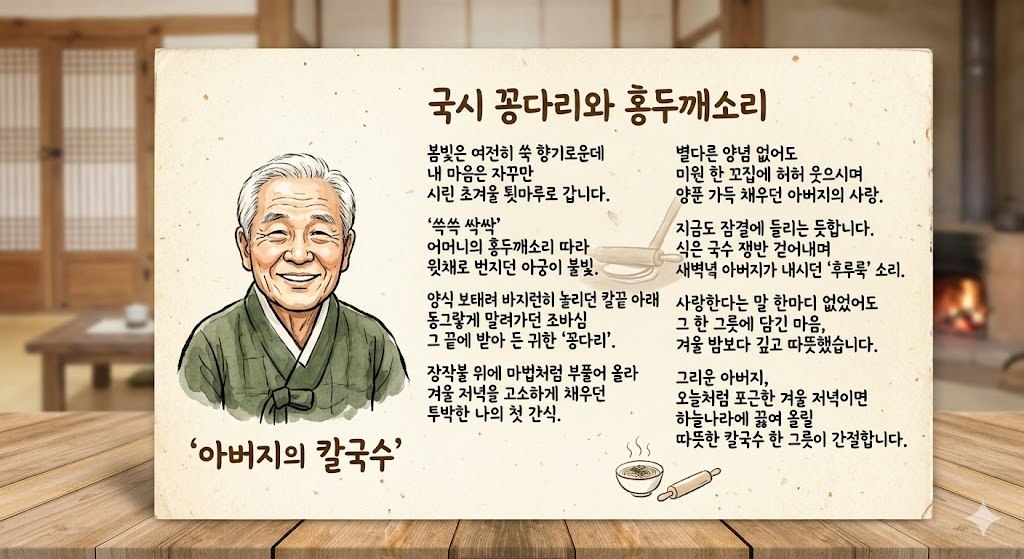 국시 꽁다리와 홍두깨소리
봄빛은 여전히 쑥 향기로운데
내 마음은 자꾸만
시린 초겨울 툇마루로 갑니다.
‘쓱쓱 싹싹’
어머니의 홍두깨소리 따라
윗채로 번지던 아궁이 불빛.
양식 보태려 바지런히 놀리던 칼끝 아래
동그랗게 말려가던 조바심
그 끝에 받아 든 귀한 ‘꽁다리’.
장작불 위에 마법처럼 부풀어 올라
겨울 저녁을 고소하게 채우던
투박한 나의 첫 간식.
별다른 양념 없어도
미원 한 꼬집에 허허 웃으시며
양푼 가득 채우던 아버지의 사랑.
지금도 잠결에 들리는 듯합니다.
식은 국수 쟁반 걷어내며
새벽녘 아버지가 내시던 ‘후루룩’ 소리.
사랑한다는 말 한마디 없었어도
그 한 그릇에 담긴 마음,
겨울 밤보다 깊고 따뜻했습니다.
그리운 아버지,
오늘처럼 포근한 겨울 저녁이면
하늘나라에 끓여 올릴
따뜻한 칼국수 한 그릇이 간절합니다.
‘아버지의 칼국수’